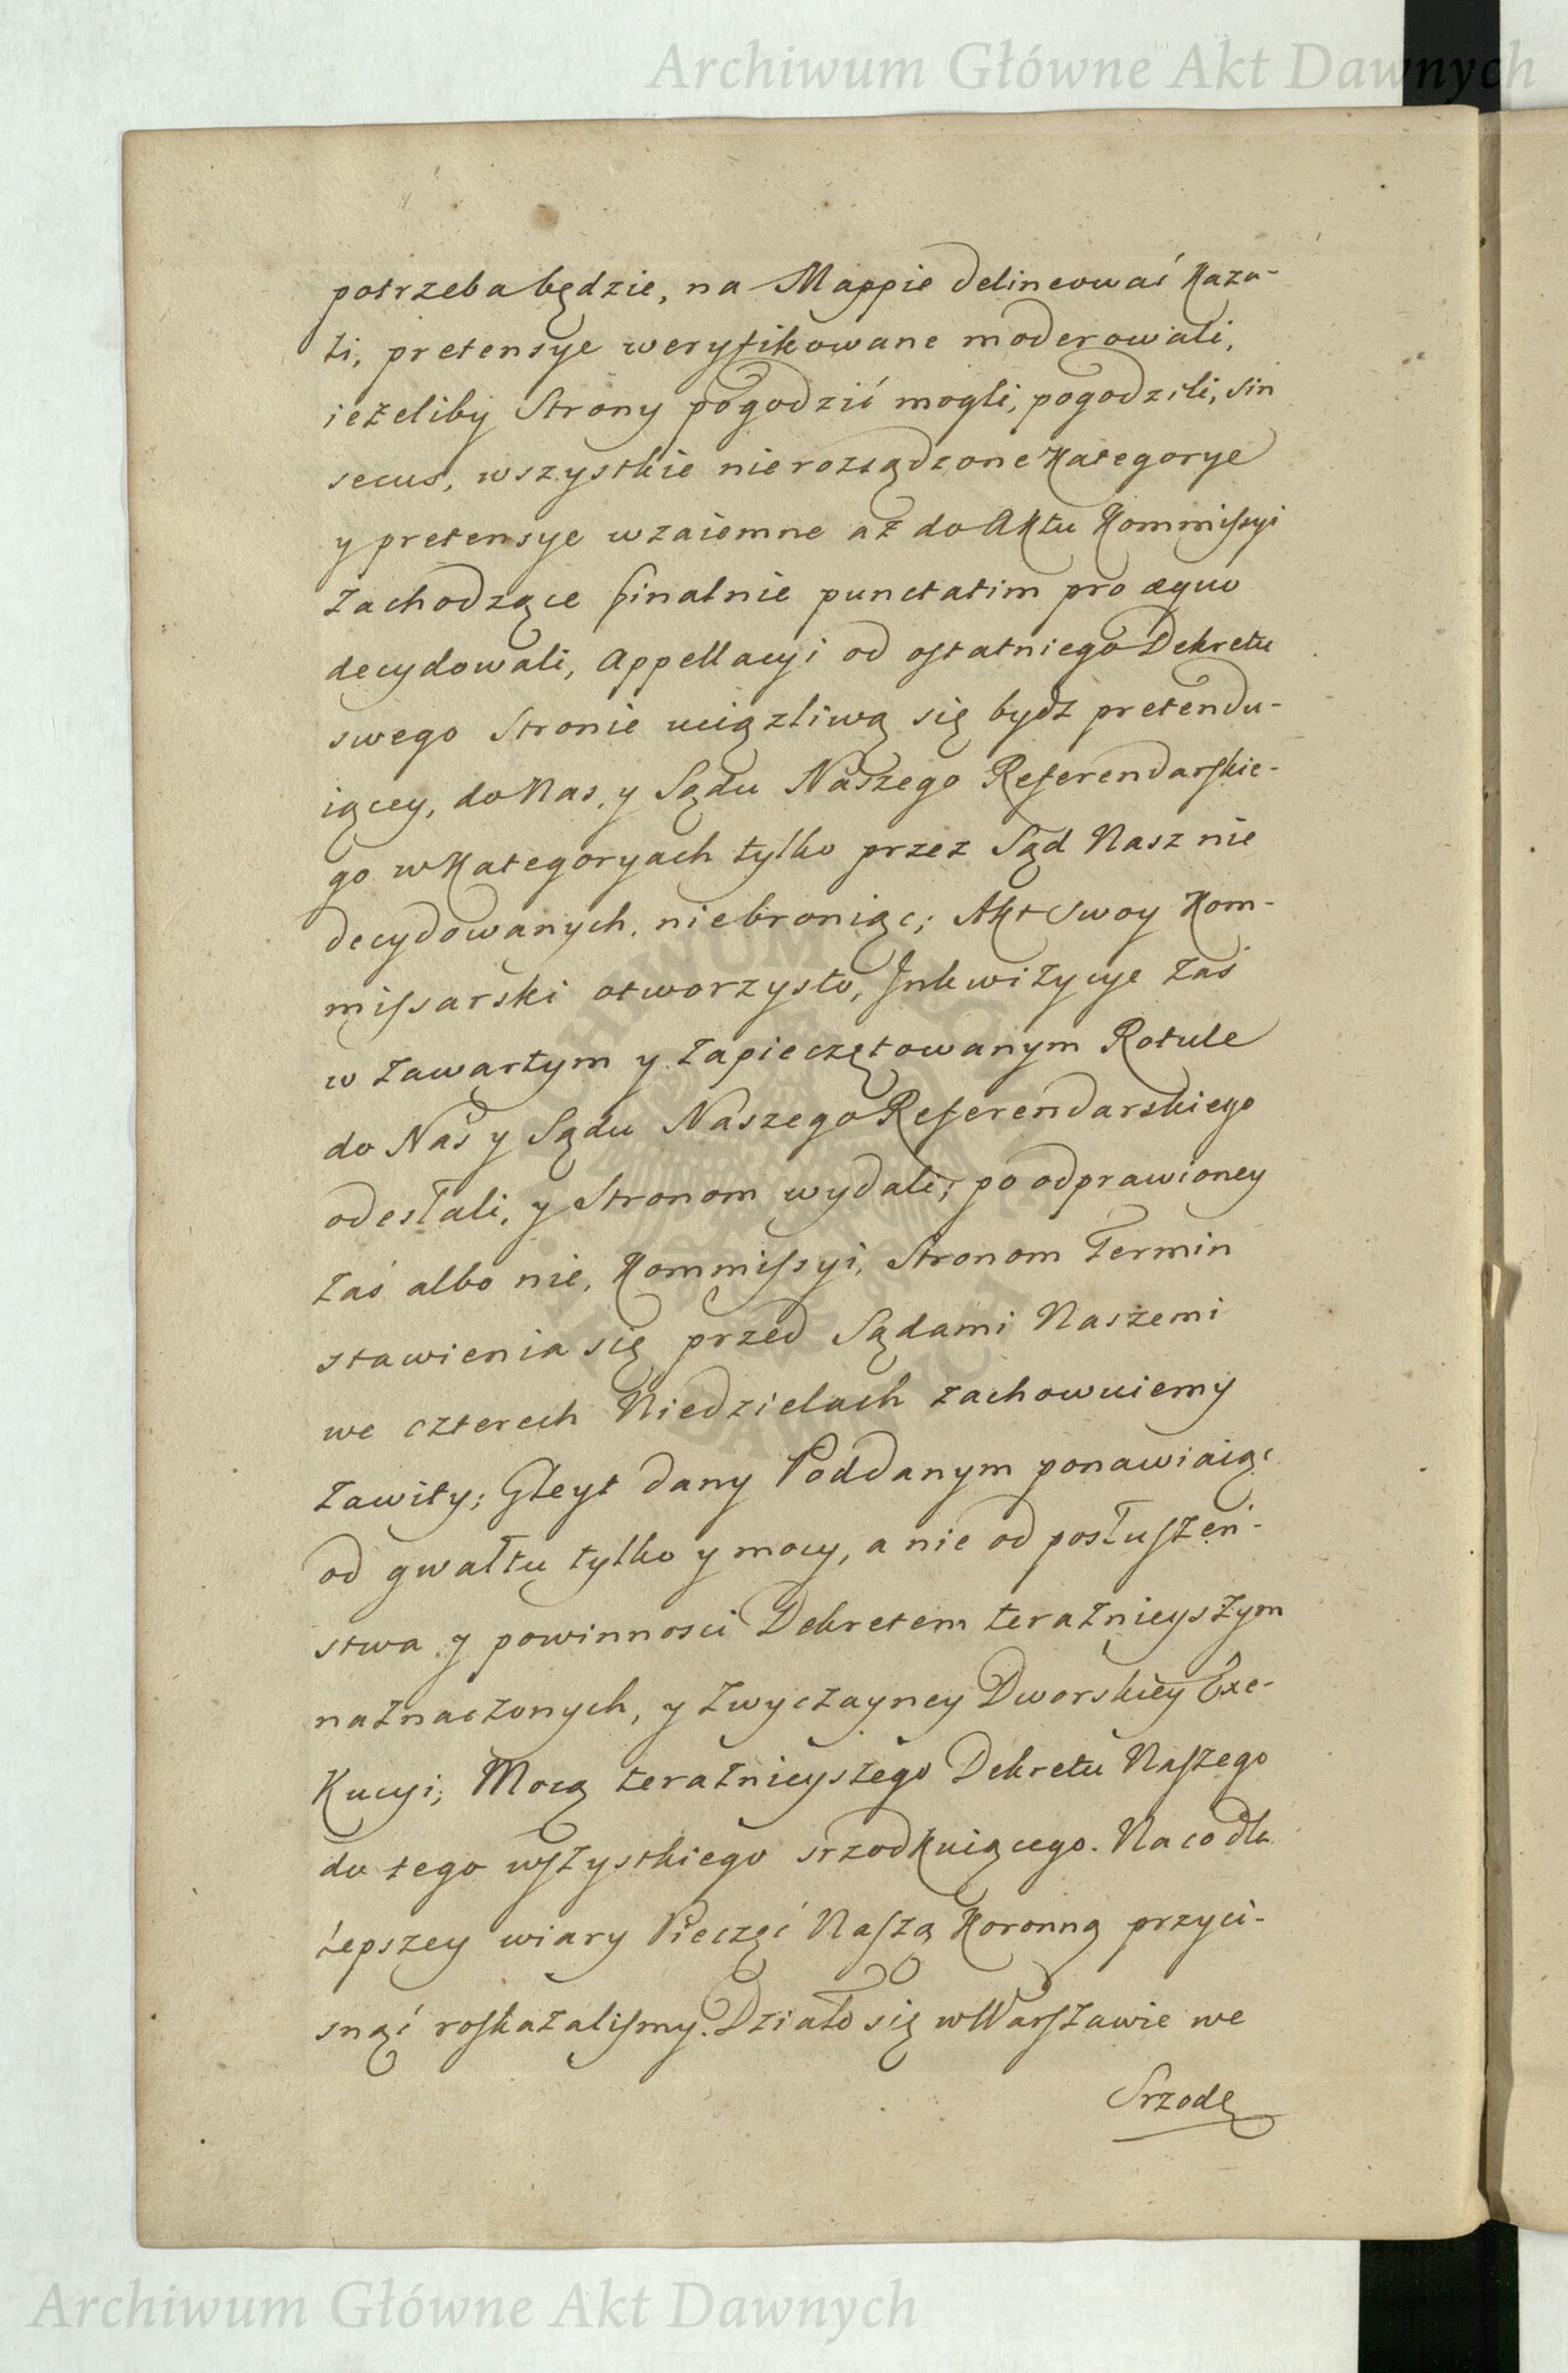 Archiwum Główne Akt Dawnych
potrzeba będzie, na Mappie delineować Kaza-
li, pretensye weryfikowane moderowali,
ieżeliby Strony pogodzić mogli, pogodzili, sin
secus, wszystkie nierozsądzone Kategorye
y pretensye wzaiemne aż do Aktu Kommissyi
zachodzące finalnie punctatim pro æquo
decydowali, Appellacyi od ostatniego Dekretu
swego Stronie uciązliwą się bydź pretendu-
iącey, do Nas, y Sądu Naszego Referendarskie-
go w Kategoryach tylko przez Sąd Nasz nie
decydowanych, niebroniąc; Akt Swoy Kom-
missarski otworzysto, Inkwizycye zaś
w zawartym y zapieczętowanym Rotule
do Nas y Sądu Naszego Referendarskiego
odesłali, y Stronom wydali; po odprawioney
zaś albo nie, Kommissyi, Stronom Termin
stawienia się przed Sądami Naszemi
we czterech Niedzielach zachowuiemy
zawity; Gleyt dany Poddanym ponawiaiąc
od gwałtu tylko y mocy, a nie od posłuszeń-
stwa y powinnosci Dekretem teraznieyszym
naznaczonych, y zwyczayney Dworskiey Exe-
Kucyi; Mocą teraznieyszego Dekretu Naszego
do tego wszystkiego srzodkuiącego. Na co dla
lepszey wiary Pieczęć Naszą Koronną przyci-
snąć roskazalismy. Działo się w Warszawie we
Srzodę
Archiwum Główne Akt Dawnych